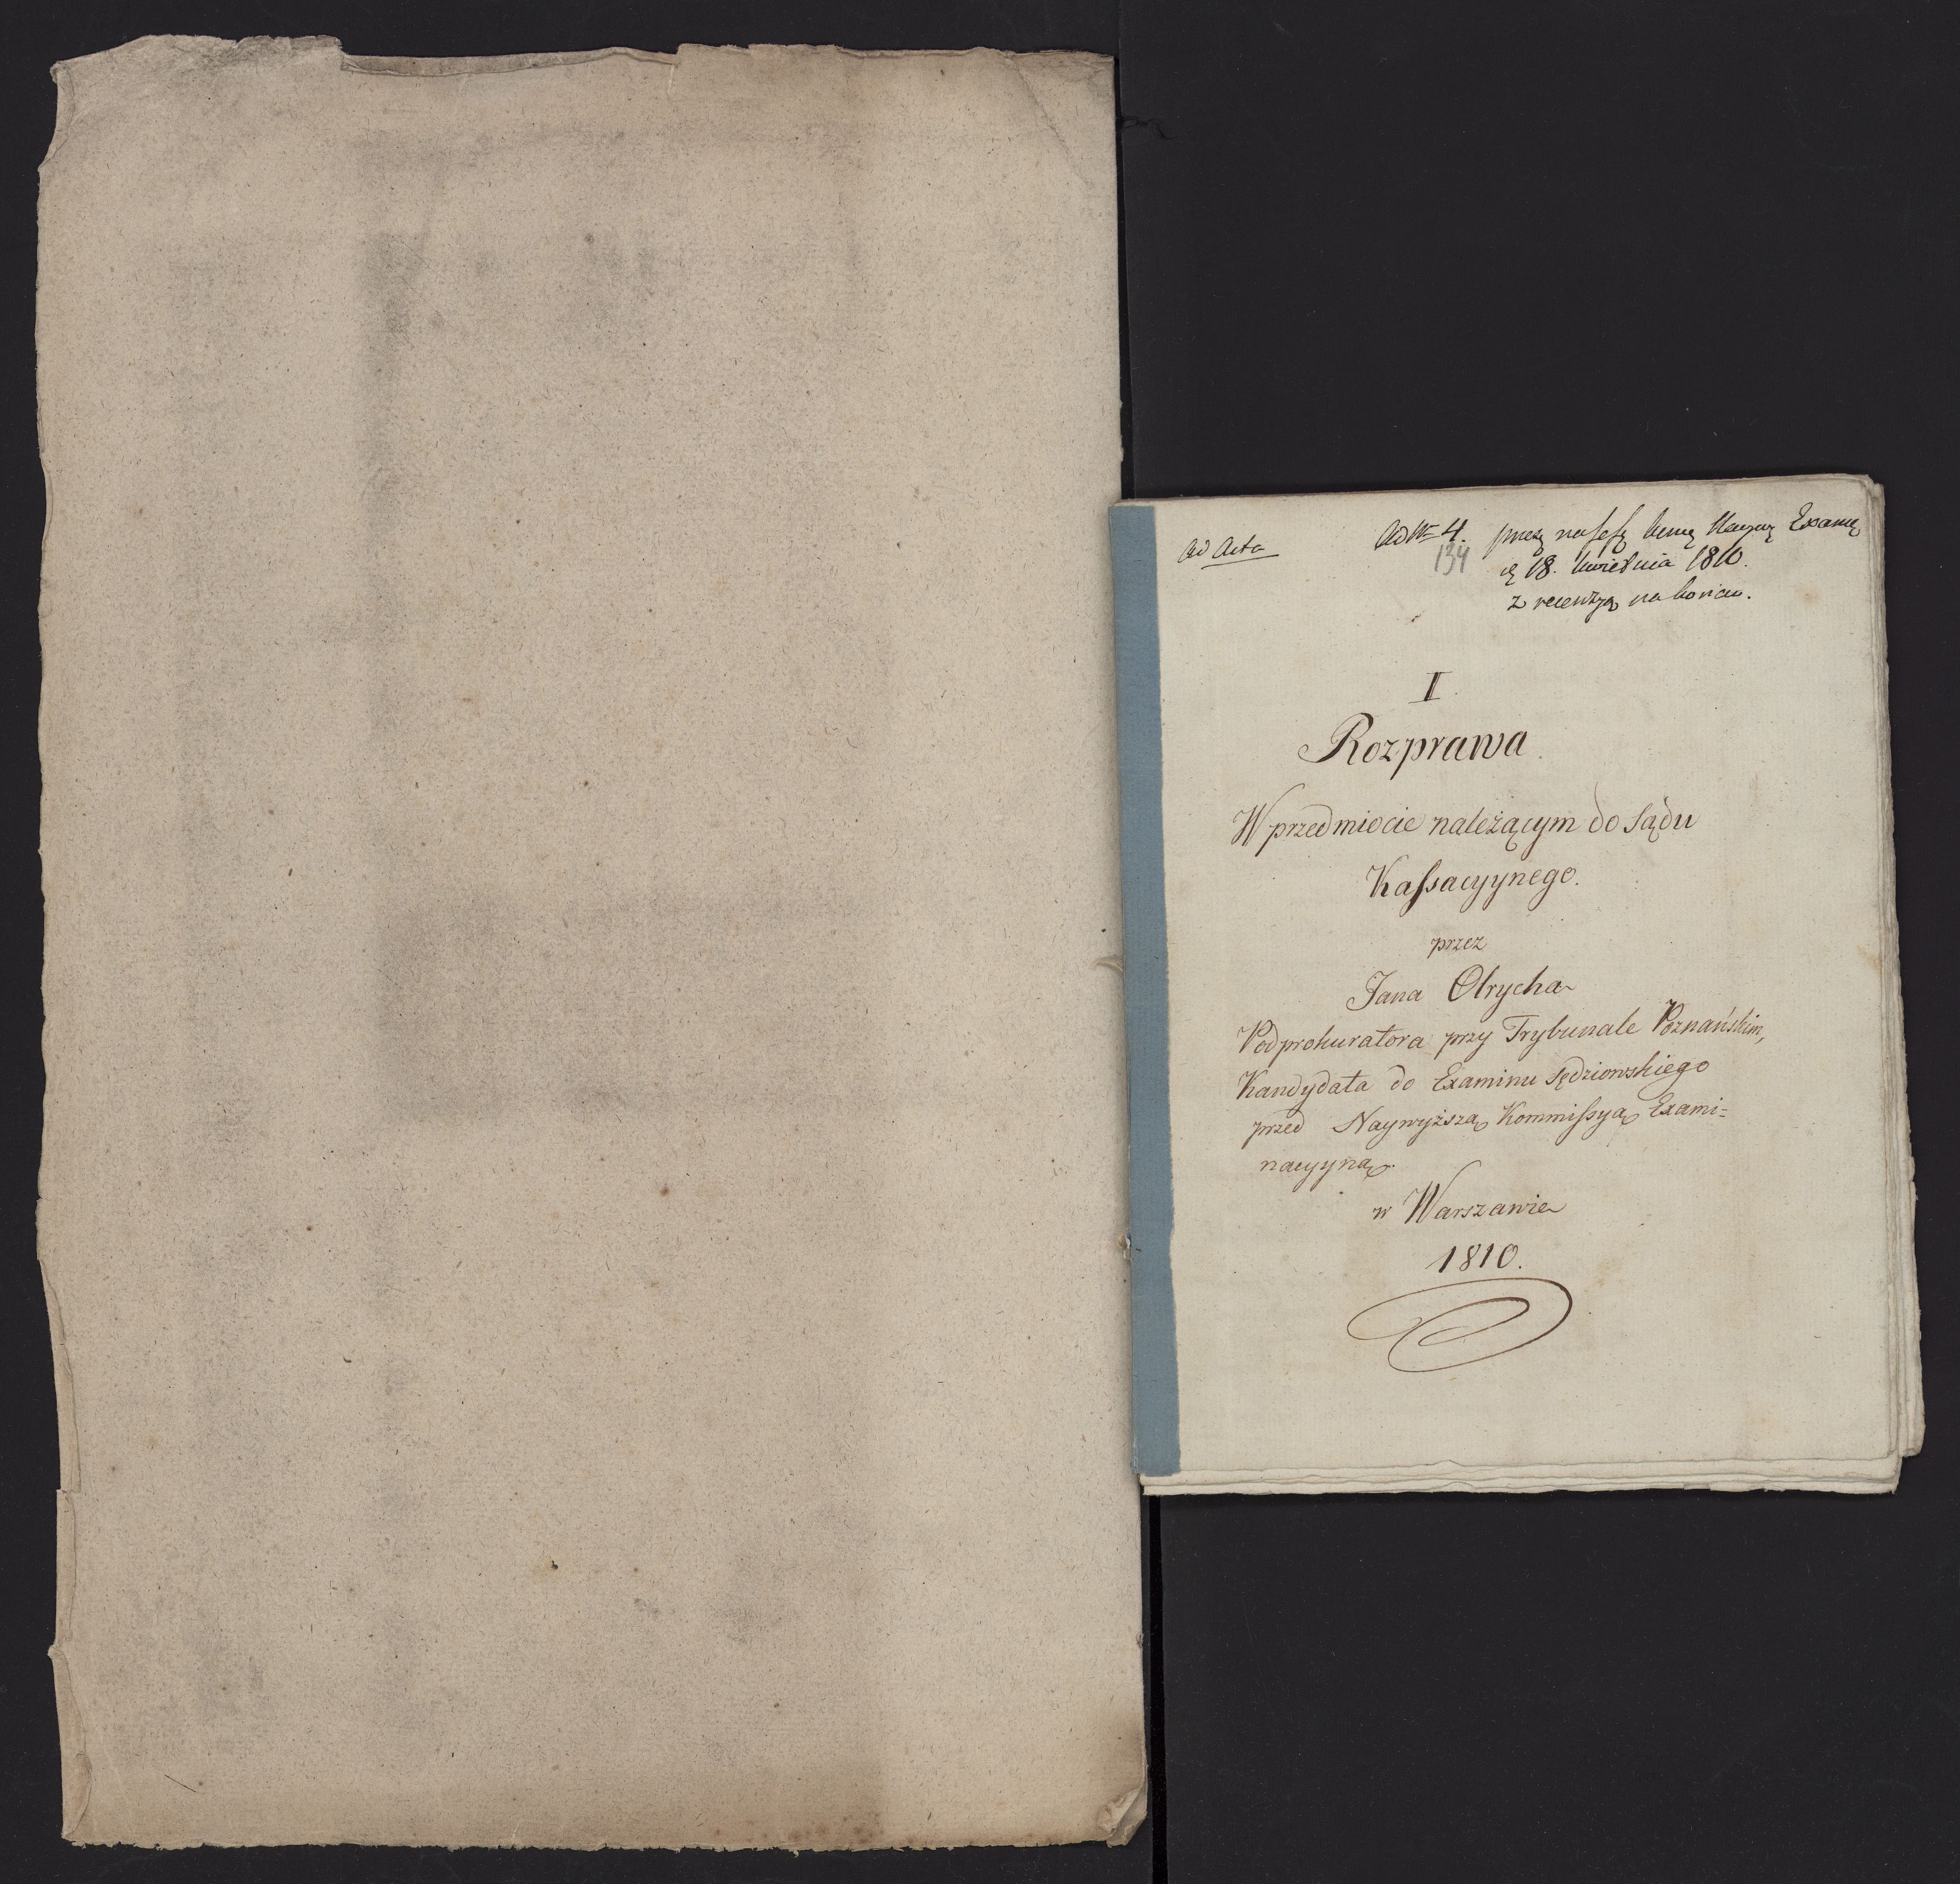 ad Acta
Ad Nr 4.
134
18. kwietnia 1810.
z recenzyą na końcu.
I
Rozprawa
W przedmiocie należącym do Sądu
Kassacyynego.
przez
Jana Olrycha
Podprokuratora przy Trybunale Poznańskim,
Kandydata do Examinu Sędziowskiego
przed Naywyższą Kommissyą Exami=
nacyyną.
w Warszawie
1810.